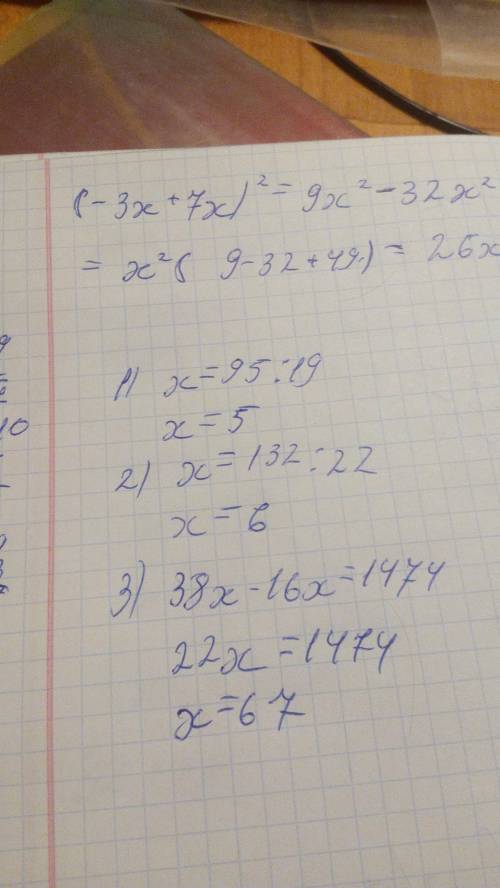 (-3x+7x)² = 9x² - 32x²
= x²( 9-32+49) = 26x
1) x = 95:19
x = 5
2) x = 132:22
x = 6
3) 38x - 16x = 1474
22x = 1474
x = 67
10